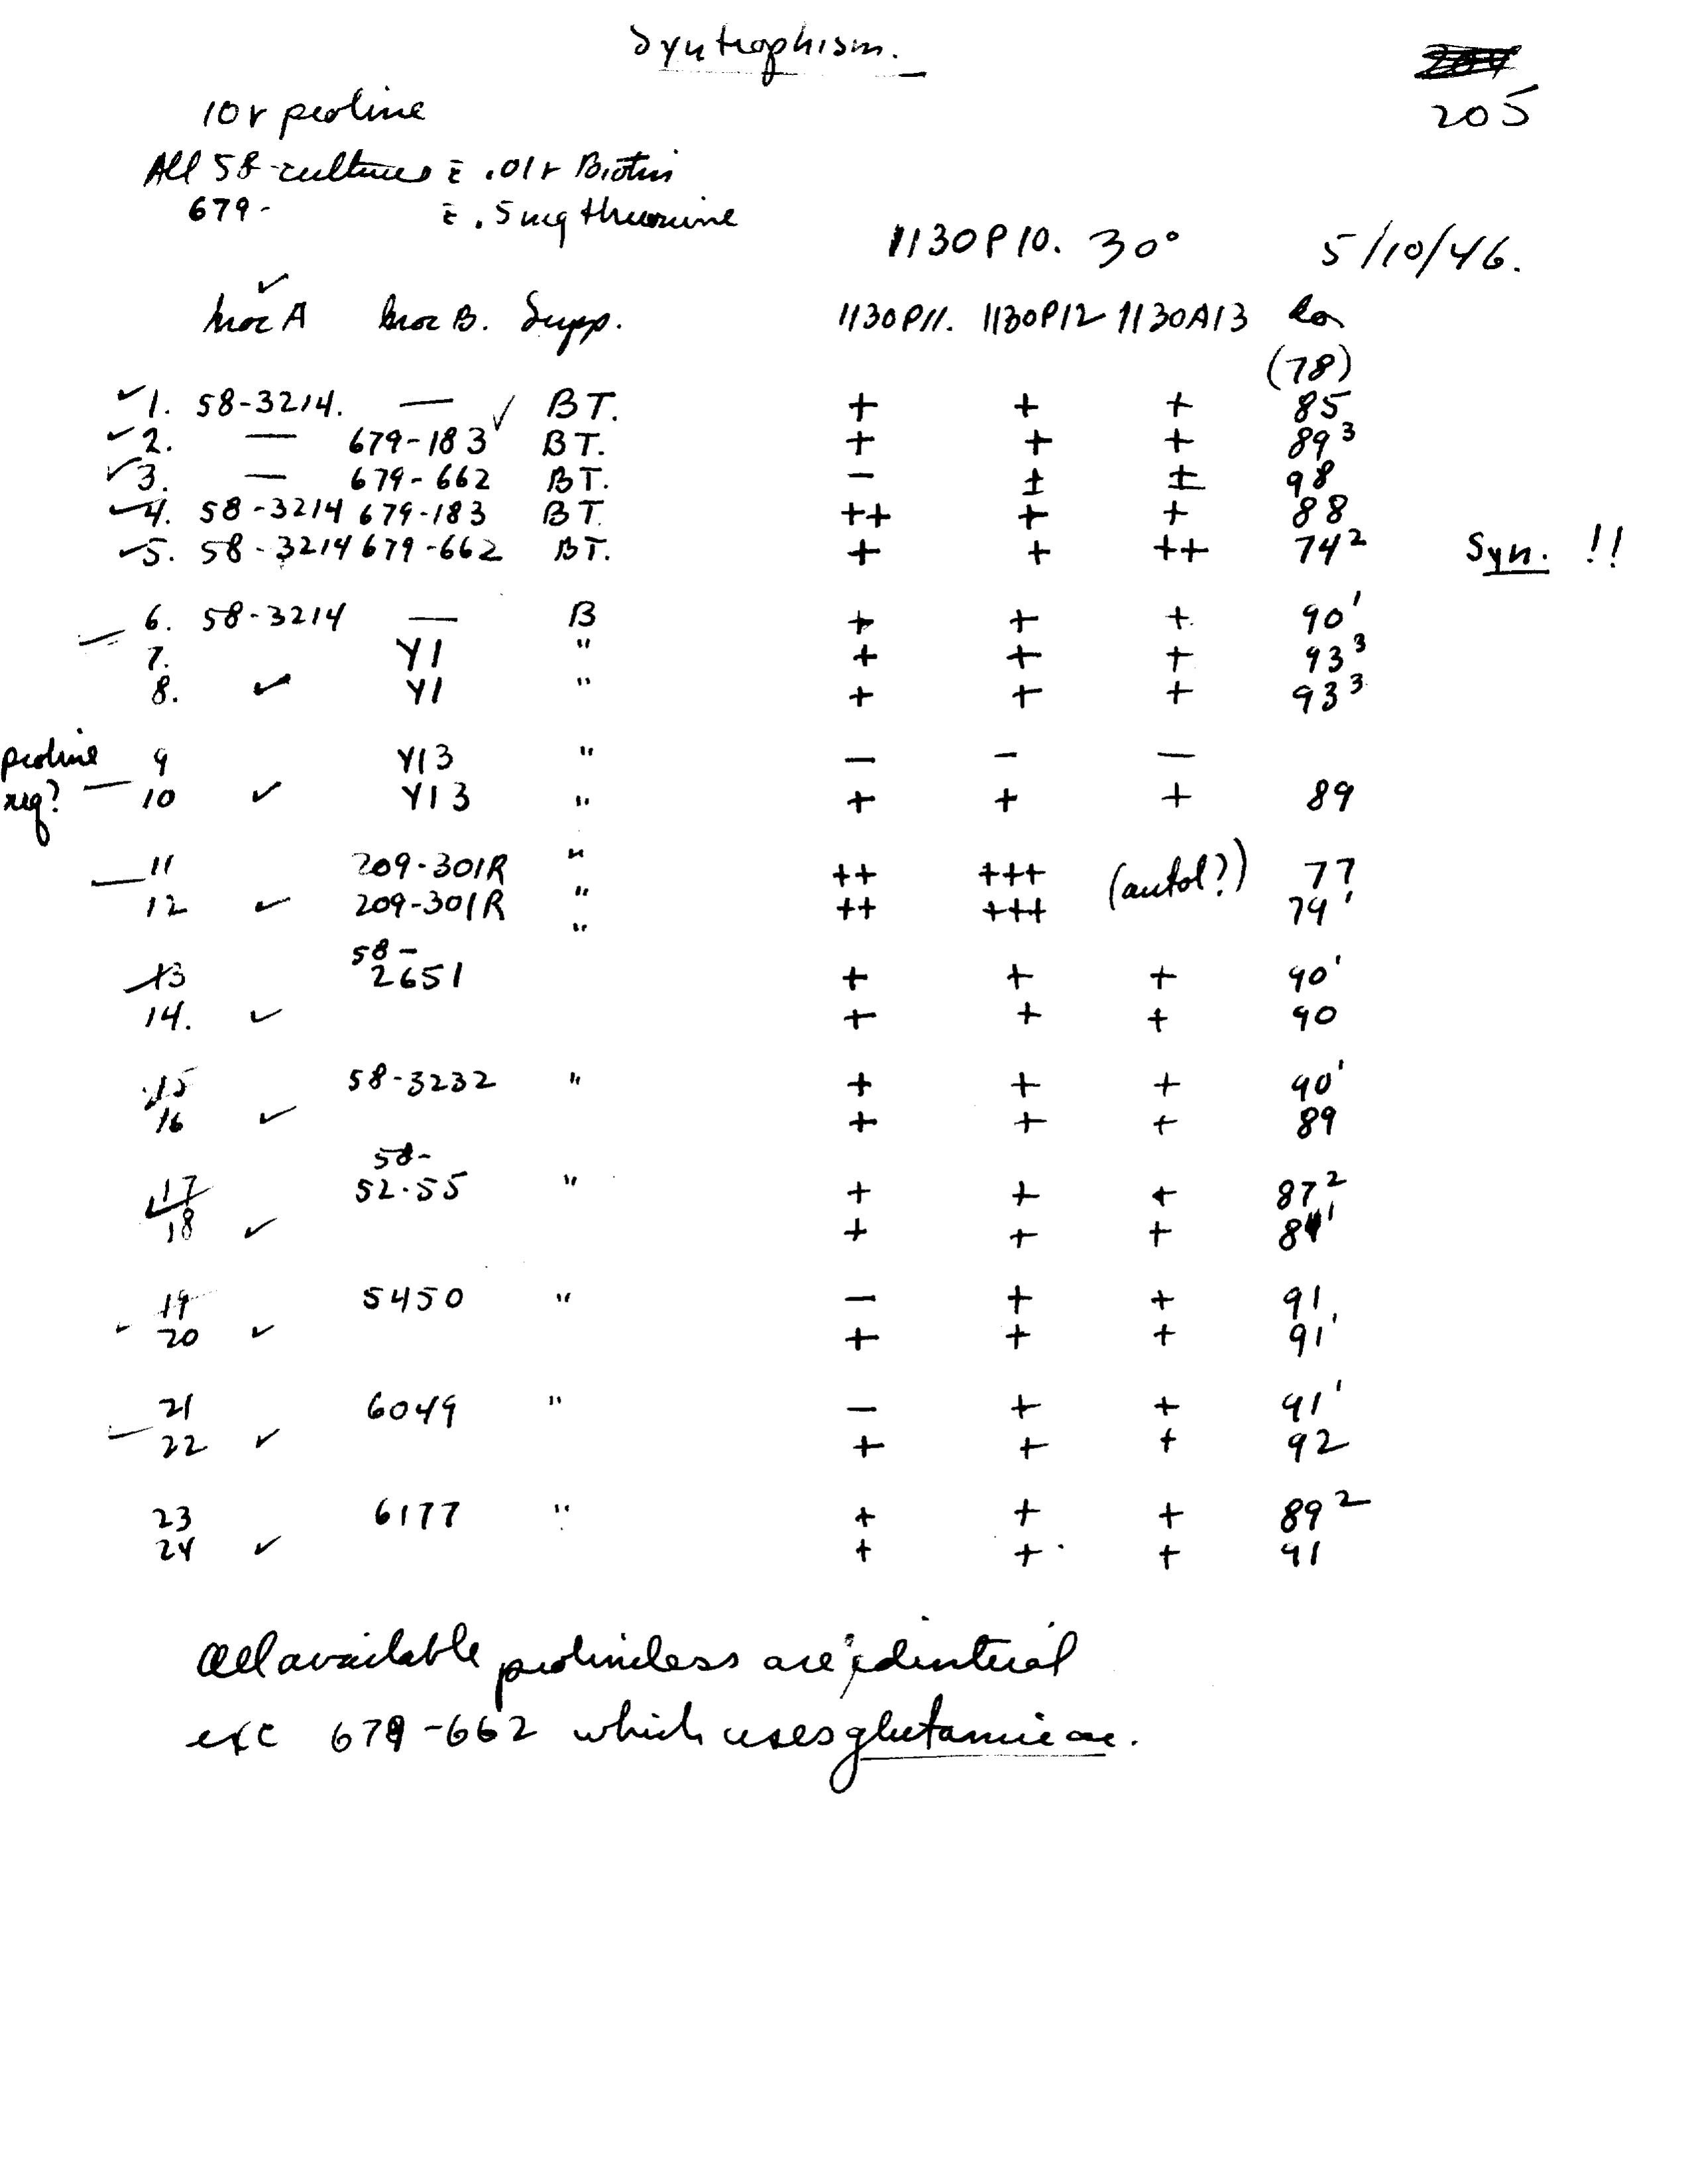 Syntrophism.
205
10γ proline
All 58-cultures c̄ .01γ Biotin
679- c̄ .5mg threonine
1130P10. 30° 5/10/46.
✓
Inoc A Inoc B. Supp. 1130P11. 1130P12 1130A13
(78)
✓1. 58-3214. — ✓ BT. + + + 85
✓2. — 679-183 BT. + + + 89³
✓3. — 679-662 BT. − ± ± 98
✓4. 58-3214 679-183 BT. ++ + + 88
✓5. 58-3214 679-662 BT. + + ++ 74² Syn. !!
6. 58-3214 — B + + + 90'
7. Y1 " + + + 93³
8. ✓ Y1 " + + + 93³
proline 9 Y13 " — − —
req? 10 ✓ Y13 " + + + 89
11 209-301R " ++ +++ (autol?) 77
12 ✓ 209-301R " ++ +++ 74'
58- "
13 2651 + + + 90'
14. ✓ + + + 90
15 58-3232 " + + + 90'
16 ✓ + + + 89
58-
17 52-55 " + + + 87²
18 ✓ + + + 84'
19 5450 " — + + 91
20 ✓ + + + 91'
21 6049 " — + + 91'
22 ✓ + + + 92
23 6177 " + + + 89²
24 ✓ + + + 91
All available prolineless are identical
exc 679-662 which uses glutamic ac.